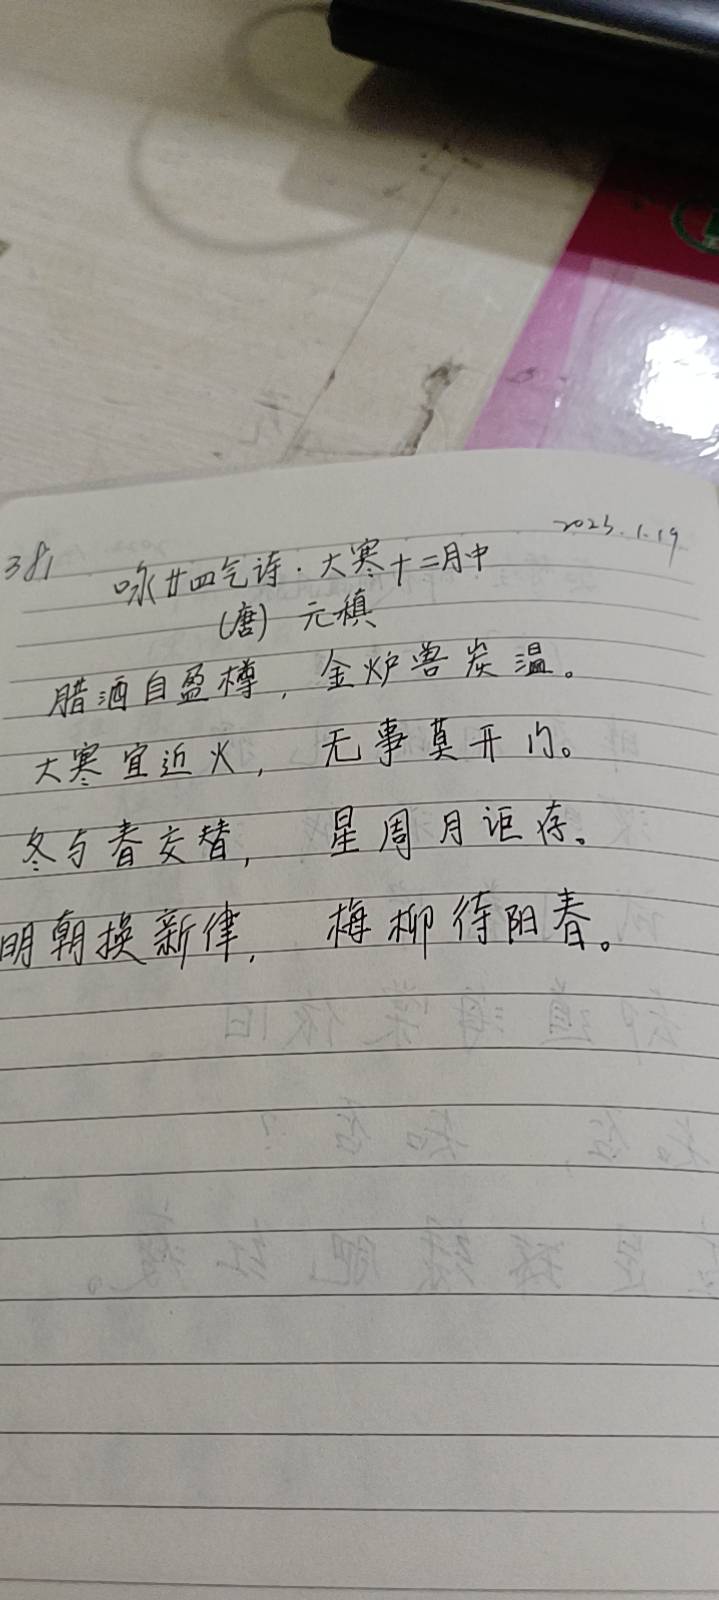 381
2023.1.19
咏廿四气诗·大寒十二月中
(唐) 元稹
腊酒自盈樽，金炉兽炭温。
大寒宜近火，无事莫开门。
冬与春交替，星周月讵存。
明朝换新律，梅柳待阳春。